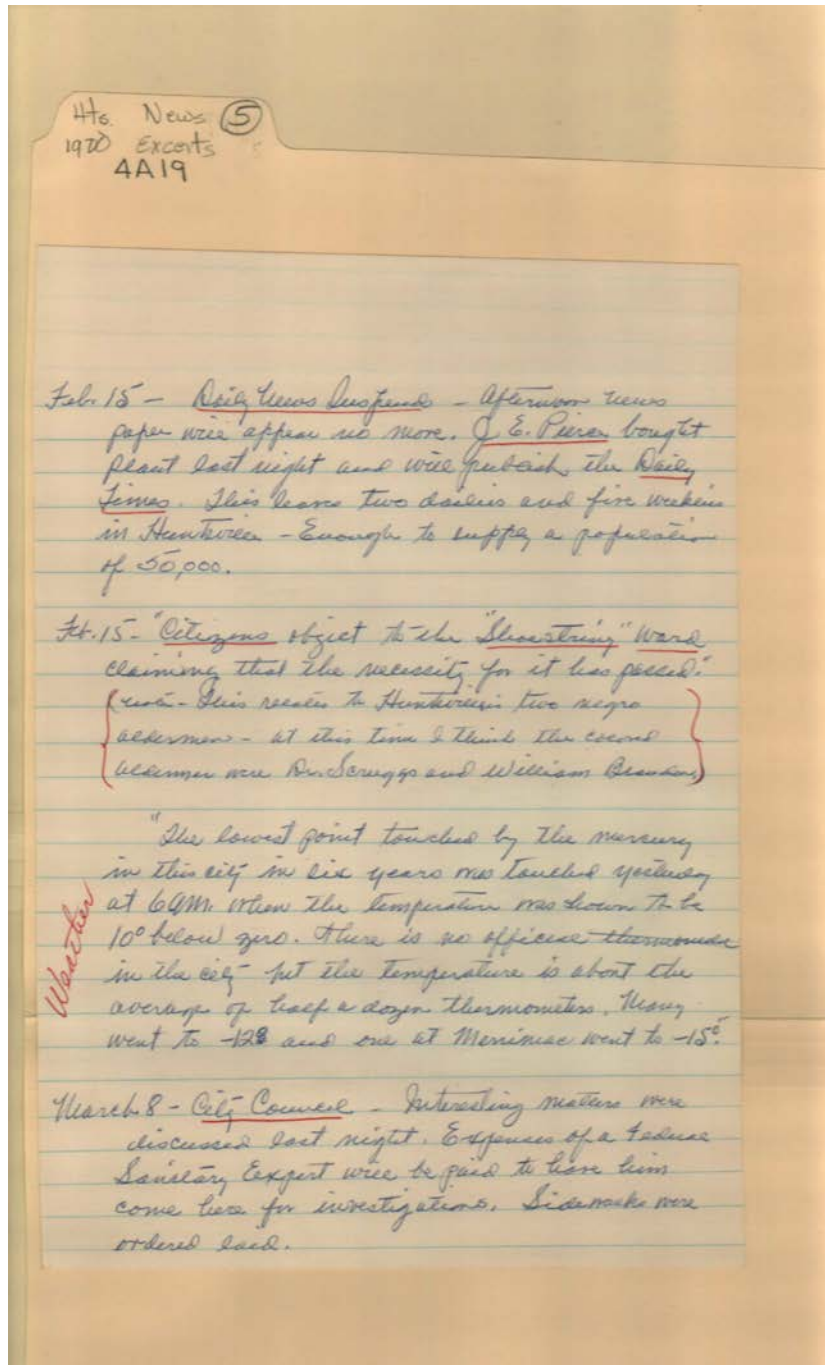 Hts. News ⑤
1900 Excerts
4A19
Feb. 15 - Daily News Suspend - Afternoon news
paper will appear no more. J. E. Pierce bought
plant last night and will publish the Daily
Times. This leaves two dailies and five weeklies
in Huntsville - Enough to supply a population
of 50,000.
Feb. 15 - "Citizens object to the "Shoestring" Ward
claiming that the necessity for it has passed."
(note - This relates to Huntsville's two negro
aldermen - at this time I think the colored
aldermen were Dr. Scruggs and William Brandon)
"The lowest point touched by the mercury
in this city in six years was touched yesterday
at 6 AM. when the temperature was shown to be
10° below zero. There is no official thermometer
in the city but the temperature is about the
average of half a dozen thermometers. Many
went to -12° and one at Merrimac went to -15°."
Weather
March 8 - City Council - Interesting matters were
discussed last night. Expenses of a Federal
Sanitary Expert will be paid to have him
come here for investigations. Sidewalks were
ordered laid.